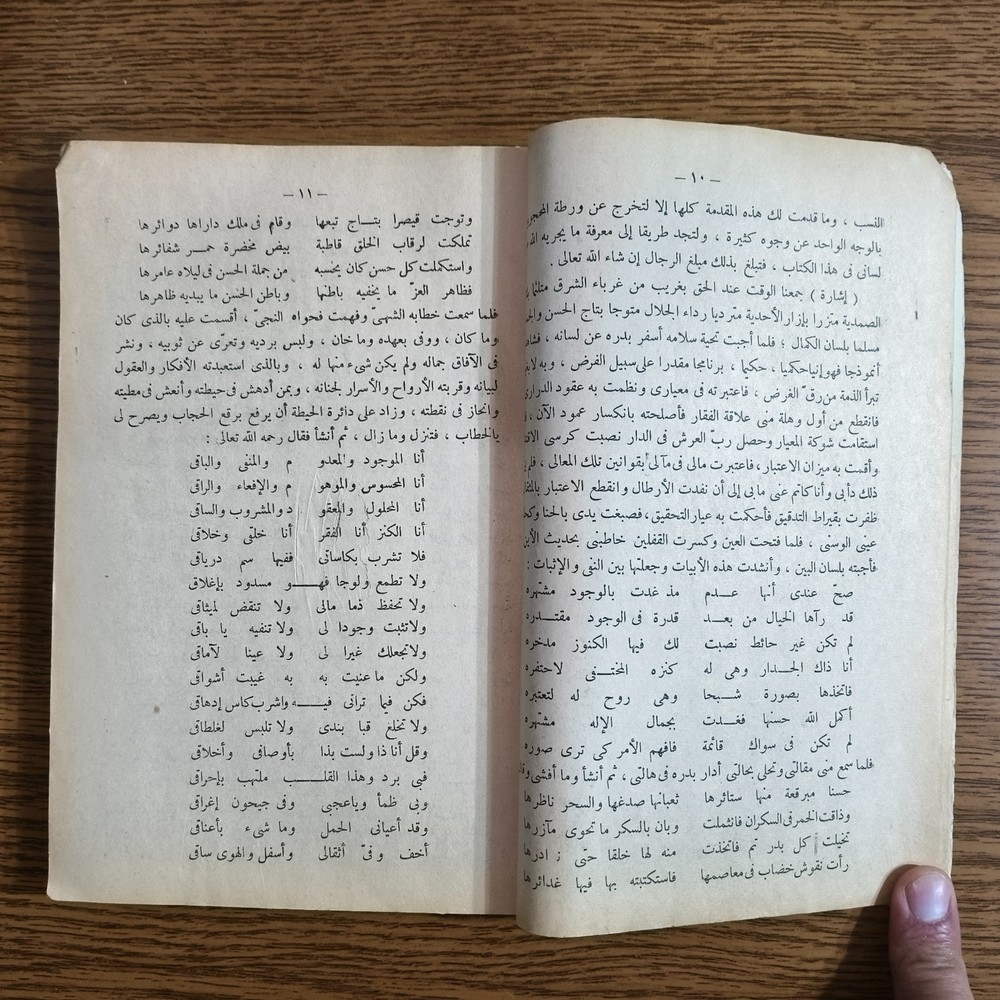 — ١٠ —
النسب ، وما قدمت لك هذه المقدمة كلها إلا لتخرج عن ورطة
بالوجه الواحد عن وجوه كثيرة ، ولتجد طريقا إلى معرفة ما يجريه الله
لسانى فى هذا الكتاب ، فتبلغ بذلك مبلغ الرجال إن شاء الله تعالى .
( إشارة ) جمعنا الوقت عند الحق بغريب من غرباء الشرق متلثما
الصمدية متزرا بإزار الأحدية متر ديا رداء الجلال متوجا بتاج الحسن
مسلما بلسان الكمال ؛ فلما أجبت تحية سلامه أسفر بدره عن لسانه ،
أنموذجا فهو إنيا حكميا ، حكيما ، برنامجا مقدرا على سبيل الفرض ، وبه
تبرأ الذمة من رق الغرض ، فاعتبرته فى معيارى ونظمت به عقود الدرارى
فانقطع من أول وهلة منى علاقة الفقار فأصلحته بانكسار عمود الآن ،
استقامت شوكة المعيار وحصل رب العرش فى الدار نصبت كرسى
وأقمت به ميزان الاعتبار ، فاعتبرت مالى فى مآلى بقوانين تلك المعالى ،
ذلك دأبى وأنا كاتم عنى مابى إلى أن نفدت الأرطال وانقطع الاعتبار
ظفرت بقيراط التدقيق فأحكمت به عيار التحقيق ، فصبغت يدى بالحنا
عينى الوسنى ، فلما فتحت العين وكسرت القفلين خاطبنى بحديث
فأجبته بلسان البين ، وأنشدت هذه الأبيات وجعلتها بين النفى والإثبات :
صح عندى أنها عـــدم مذ غدت بالوجود مشتهره
قد رآها الخيال من بعـــد قدرة فى الوجود مقتـــدره
لم تكن غير حائط نصبت لك فيها الكنوز مدخره
أنا ذاك الجـــدار وهى له كنزه المختـــفى لاحتفره
فاتخذها بصورة شـــبحا وهى روح له لتعتبره
أكمل الله حسنها فغـــدت بجمال الإله مشتهره
لم تكن فى سواك قائمة فافهم الأمر كى ترى صوره
فلما سمع منى مقالتى وتحلى بحالتى أدار بدره فى هالتى ، ثم أنشأ وما أفشى
حسنا مبرقعة منها ستائرها ثعبانها صدغها والسحر ناظرها
وذاقت الخمر فى السكران فانثملت وبان بالسكر ما تحوى مآزرها
تخيلت كل بدر تم فاتخذت منه لها خلقا حتى
رأت نقوش خضاب فى معاصمها فاستكتبته بها فيها غدائرها
— ١١ —
وتوجت قيصرا بتـــاج تبعها وقام فى ملك داراها دوائرها
تملكت لرقاب الخلق قاطبة بيض مخضرة حمـــر شفائرها
واستكملت كل حسن كان يحسبه من جملة الحسن فى ليلاه عامرها
فظاهر العز ما يخفيه باطنها وباطن الحسن ما يبديه ظاهرها
فلما سمعت خطابه الشهى وفهمت فحواه النجى ، أقسمت عليه بالذى كان
وما كان ، ووفى بعهده وما خان ، ولبس برديه وتعرى عن ثوبيه ، ونشر
فى الآفاق جماله ولم يكن شىء منها له ، وبالذى استعبدته الأفكار والعقول
لبيانه وقربته الأرواح والأسرار لجنانه ، وبمن أدهش فى حيطته وأنعش فى مطيته
وانحاز فى نقطته ، وزاد على دائرة الحيطة أن يرفع برقع الحجاب ويصرح لى
بالخطاب ، فتنزل وما زال ، ثم أنشأ فقال رحمه الله تعالى :
أنا الموجود والمعدو م والمنفى والباقى
أنا المحسوس والموهو م والإفعاء والراقى
أنا المحلول والمعقو د والمشروب والساقى
أنا الكنز أنا الفقر أنا خلقى وخلاقى
فلا تشرب بكاساتى ففيها سم درياقى
ولا تطمع ولوجا فهـــو مسدود بإغلاق
ولا تحفظ ذما مالى ولا تنقض لميثاقى
ولا تثبت وجودا لى ولا تنفيه يا باقى
ولا تجعلك غيرا لى ولا عينا لآماقى
ولكن ما عنيت به به غيبت أشواقى
فكن فيما ترانى فيـــه واشرب كاس إدهاقى
ولا تخلع قبا بندى ولا تلبس لغلطاقى
وقل أنا ذا ولست بذا بأوصافى وأخلاقى
فبى برد وهذا القلـــب ملتهب بإحراقى
وبى ظمأ وياعجبى وفى جيحون إغراقى
وقد أعيانى الحمل وما شىء بأعناقى
أخف وفى أثقالى وأسفل والهوى ساقى